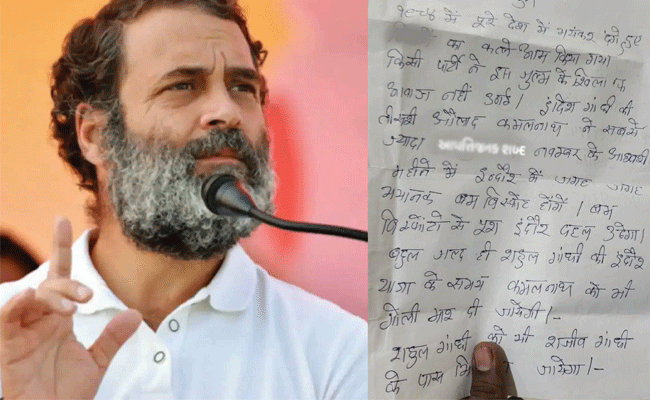 १९८४ में पूरे देश में भयंकर दंगे हुए
का कत्ले आम किया गया
किसी पार्टी ने इस जुल्म के खिलाफ
आवाज नहीं उठाई। इंदिरा गांधी की
तीसरी औलाद कमलनाथ ने सबसे
ज्यादा आपत्तिजनक शब्द नवम्बर के आखरी
महीने में इन्दौर में जगह जगह
भयानक बम विस्फोट होंगें। बम
विस्फोटो से पूरा इंदौर दहल उठेगा।
बहुत जल्द ही राहुल गांधी की इंदौर
यात्रा के समय कमलनाथ को भी
गोली मार दी जायेगी।-
राहुल गांधी को भी राजीव गांधी
के पास जायेगा।-